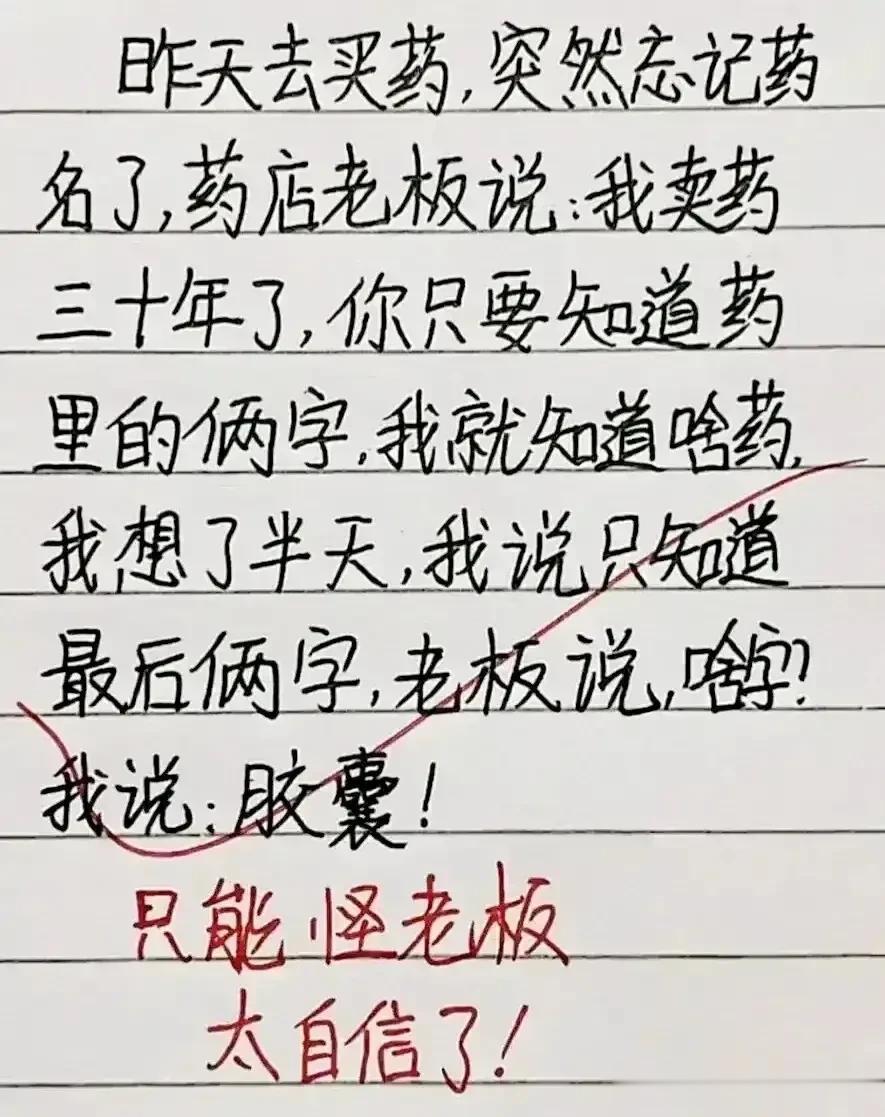 昨天去买药,突然忘记药
名了,药店老板说:我卖药
三十年了,你只要知道药
里的俩字,我就知道啥药,
我想了半天,我说只知道
最后俩字,老板说,啥字?
我说:胶囊!
只能怪老板
太自信了!